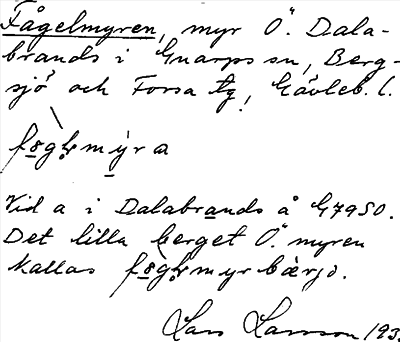 Fågelmyren, myr Ö. Dala-
brands i Gnarps sn, Berg-
sjö och Forsa tg, Gävleb. l.
Vid a i Dalabrands å G7950.
Det lilla berget Ö. myren
kallas
Lars Larsson 193